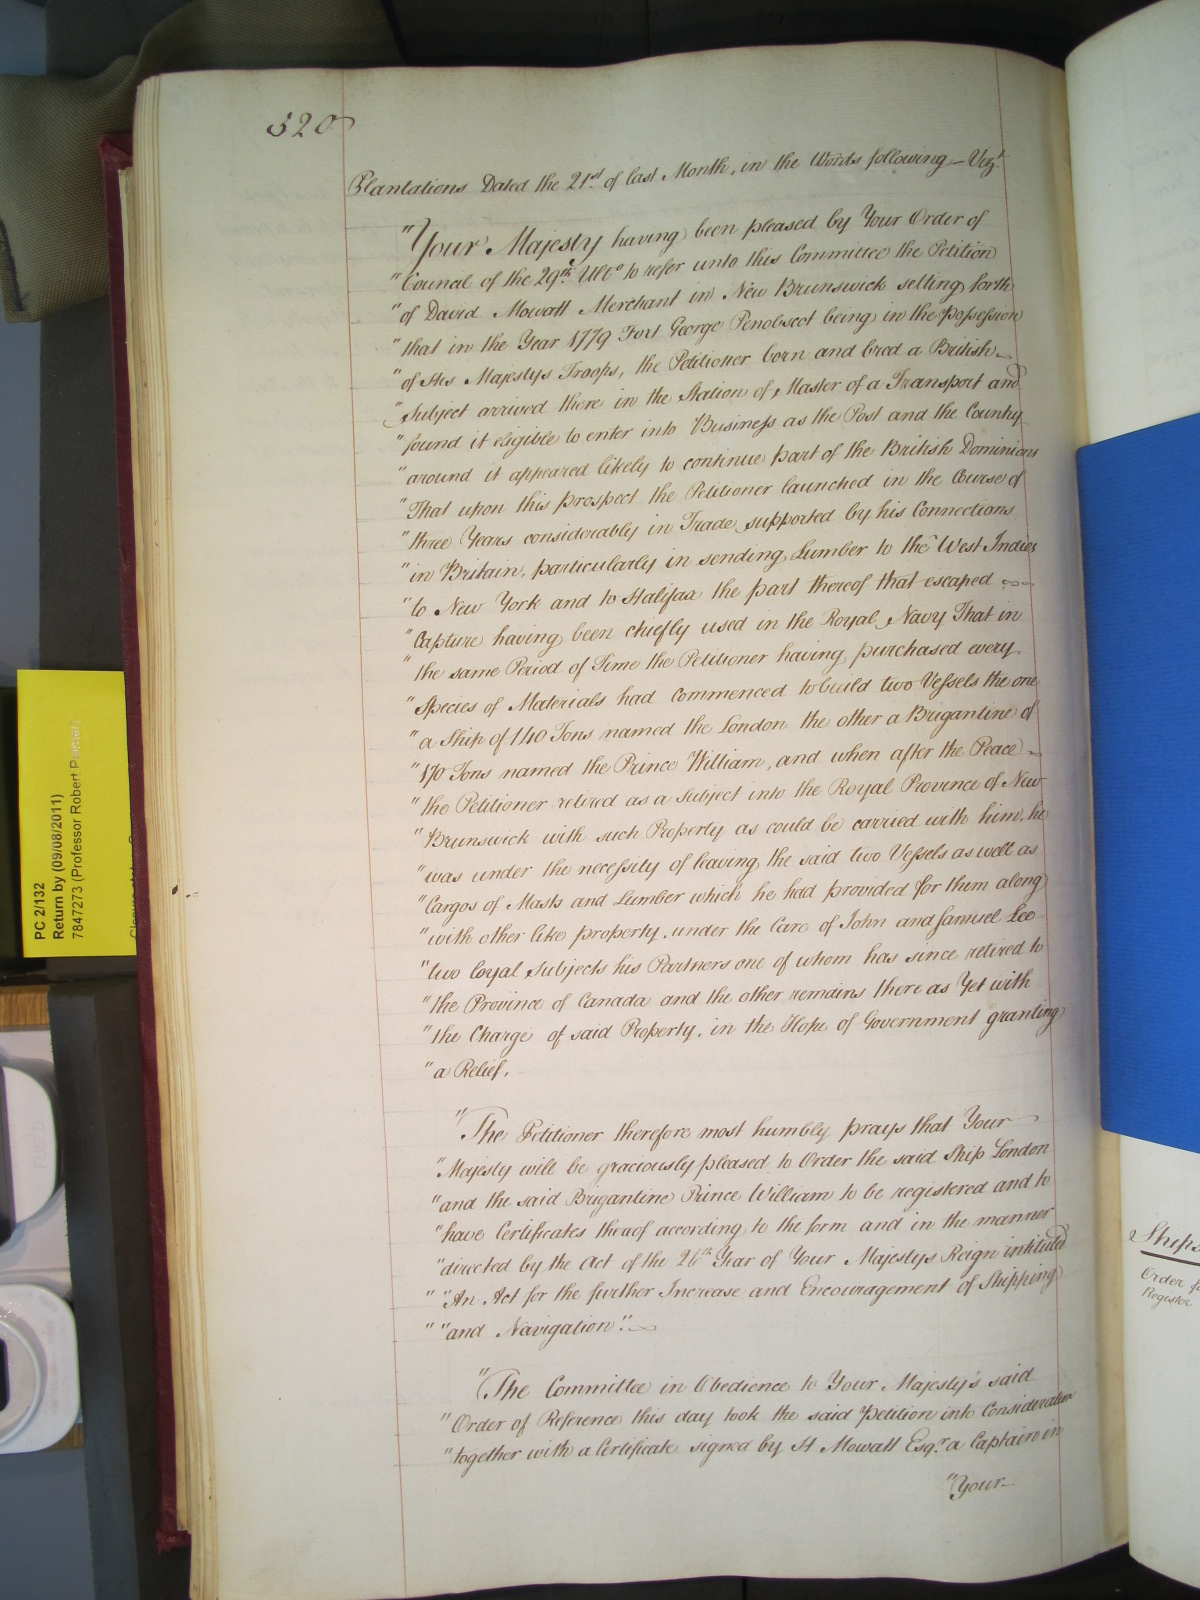 520
Plantations Dated the 21st of last Month, in the Words following – Vizt
"Your Majesty having been pleased by Your Order of
"Council of the 29th Ulto to refer unto this Committee the Petition
"of David Mowatt Merchant in New Brunswick setting forth
"that in the Year 1779 Fort George Penobscot being in the possession
"of His Majestys Troops, the Petitioner born and bred a British
"Subject arrived there in the Station of Master of a Transport and
"found it eligible to enter into Business as the Post and the Country
"around it appeared likely to continue part of the British Dominions
"That upon this prospect the Petitioner launched in the Course of
"three Years considerably in Trade supported by his Connections
"in Britain, particularly in sending Lumber to the West Indies
"to New York and to Halifax the part thereof that escaped
"Capture having been chiefly used in the Royal Navy That in
"the same Period of Time the Petitioner having purchased every
"Species of Materials had commenced to build two Vessels the one
"a Ship of 140 Tons named the London the other a Brigantine of
"170 Tons named the Prince William, and when after the Peace
"the Petitioner retired as a Subject into the Royal Province of New
"Brunswick with such Property as could be carried with him, he
"was under the necessity of leaving the said two Vessels as well as
"Cargos of Masts and Lumber which he had provided for them along
"with other like property, under the Care of John and Samuel Lee
"two loyal Subjects his Partners one of whom has since retired to
"the Province of Canada and the other remains there as Yet with
"the Charge of said Property, in the Hope of Government granting
"a Relief.
"The Petitioner therefore most humbly prays that Your
"Majesty will be graciously pleased to Order the said Ship London
"and the said Brigantine Prince William to be registered and to
"have Certificates thereof according to the form and in the manner
"directed by the Act of the 26th Year of Your Majestys Reign intituled
" "An Act for the further Increase and Encouragement of Shipping
" "and Navigation".
"The Committee in Obedience to Your Majesty's said
"Order of Reference this day took the said Petition into Consideration
"together with a Certificate signed by H Mowatt Esqr. a Captain in
"Your
PC 2/132
Return by (09/08/2011)
7847273 (Professor Robert
Ships
Order
Register